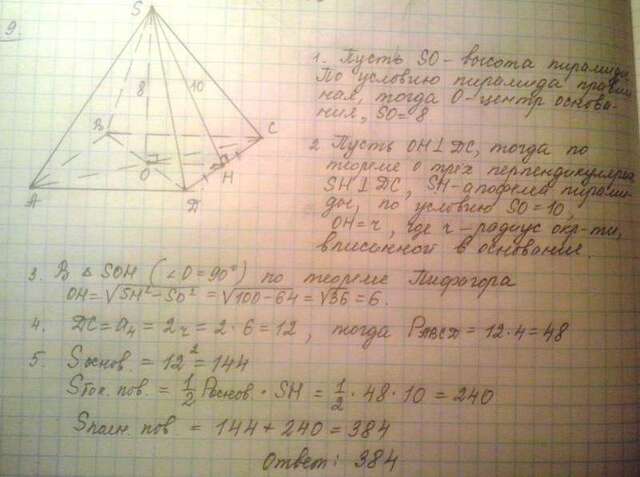 9.
S
8
10
B
C
O
H
A
D
1. Пусть SO - высота пирамиды.
По условию пирамида правиль-
ная, тогда O-центр основа-
ния, SO=8
2. Пусть OH⊥DC, тогда по
теореме о трех перпендикулярах
SH⊥DC, SH-апофема пирами-
ды, по условию SO=10,
OH=r, где r-радиус окр-ти,
вписанной в основание.
3. В △ SOH (∠O=90°) по теореме Пифагора
OH=√SH²-SO² =√100-64=√36=6.
4. DC=a₄=2r=2·6=12, тогда P_ABCD=12·4=48
5. Sоснов. = 12² = 144
Sбок. пов. = 1/2 Pоснов · SH = 1/2 · 48 · 10 = 240
Sполн. пов = 144 + 240 = 384
Ответ: 384